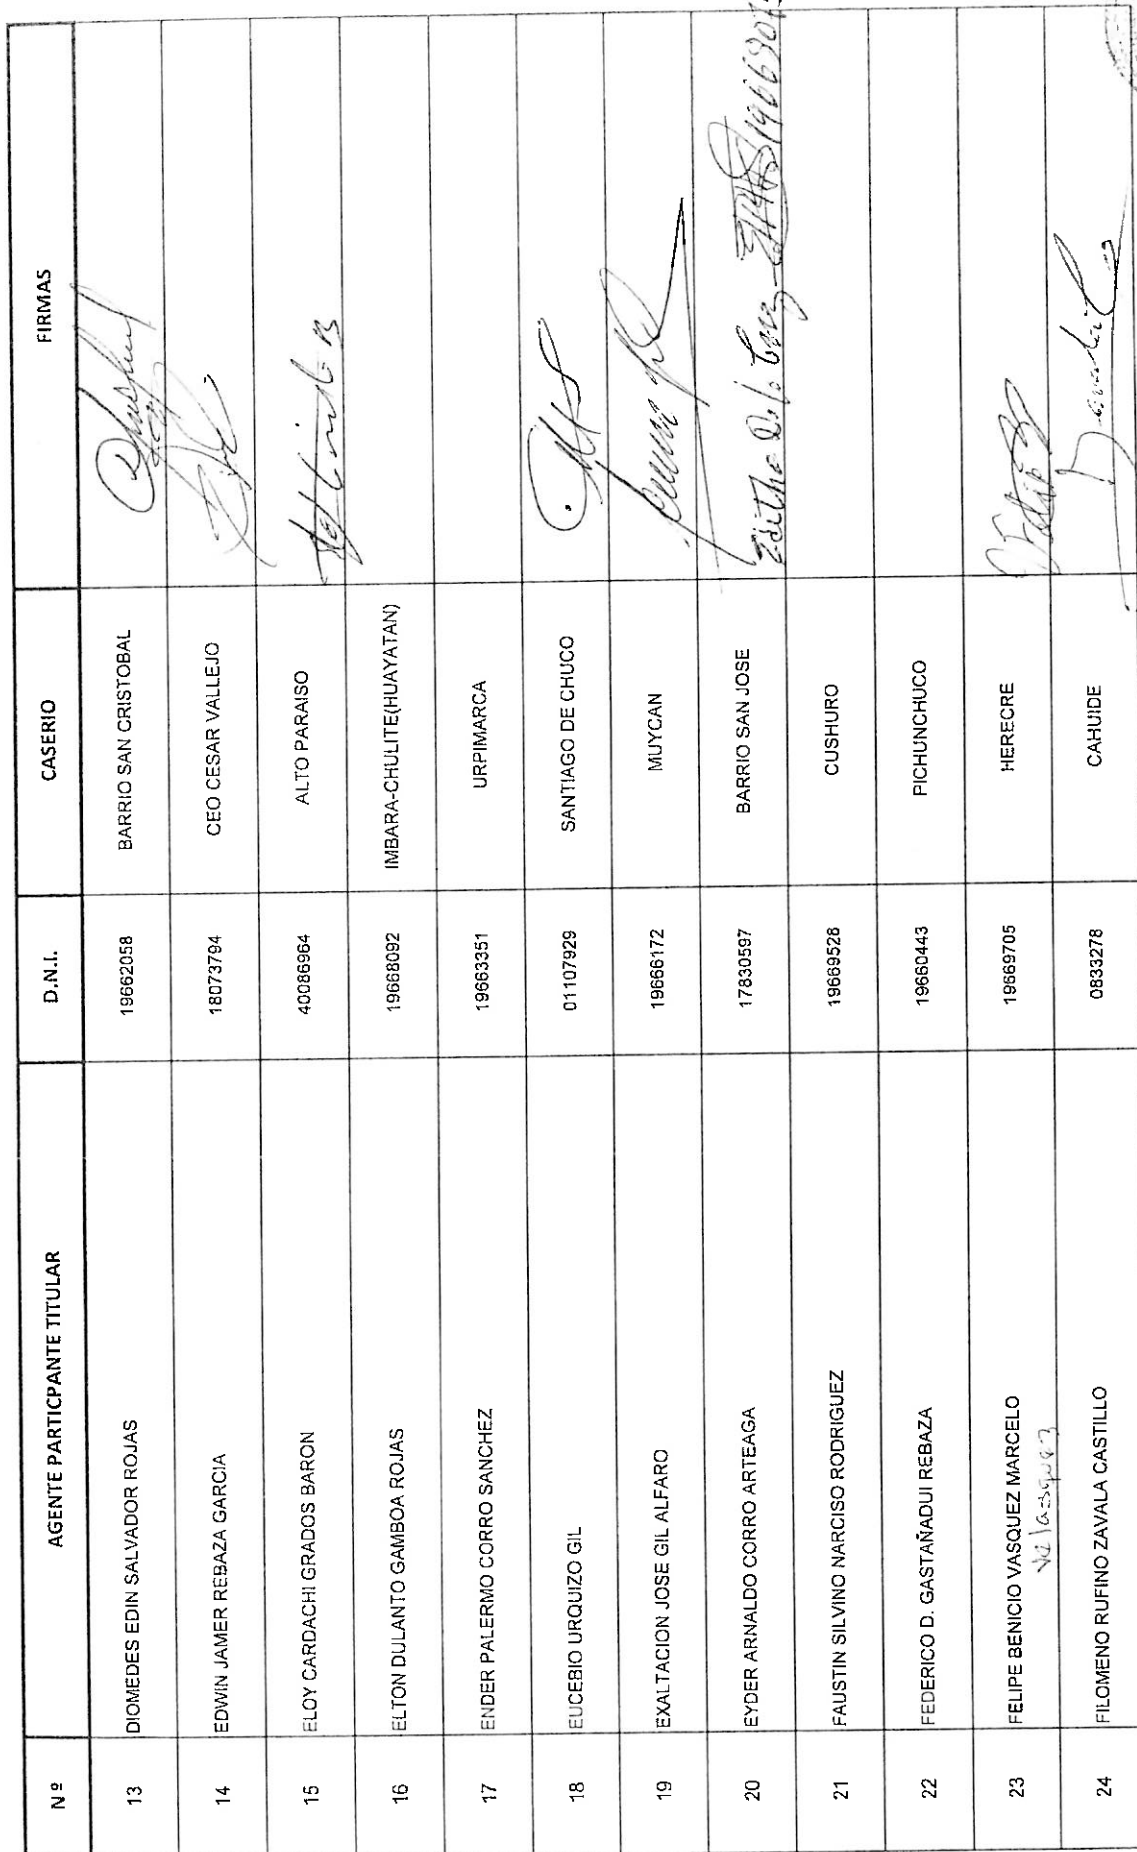 Nº AGENTE PARTICPANTE TITULAR D.N.I. CASERIO FIRMAS
13 DIOMEDES EDIN SALVADOR ROJAS 19662058 BARRIO SAN CRISTOBAL
14 EDWIN JAMER REBAZA GARCIA 18073794 CEO CESAR VALLEJO
15 ELOY CARDACHI GRADOS BARON 40086964 ALTO PARAISO
16 ELTON DULANTO GAMBOA ROJAS 19668092 IMBARA-CHULITE(HUAYATAN)
17 ENDER PALERMO CORRO SANCHEZ 19663351 URPIMARCA
18 EUCEBIO URQUIZO GIL 01107929 SANTIAGO DE CHUCO
19 EXALTACION JOSE GIL ALFARO 19666172 MUYCAN
20 EYDER ARNALDO CORRO ARTEAGA 17830597 BARRIO SAN JOSE
21 FAUSTIN SILVINO NARCISO RODRIGUEZ 19669528 CUSHURO
22 FEDERICO D. GASTAÑADUI REBAZA 19660443 PICHUNCHUCO
23 FELIPE BENICIO VASQUEZ MARCELO 19669705 HERECRE
Velasquez
24 FILOMENO RUFINO ZAVALA CASTILLO 0833278 CAHUIDE